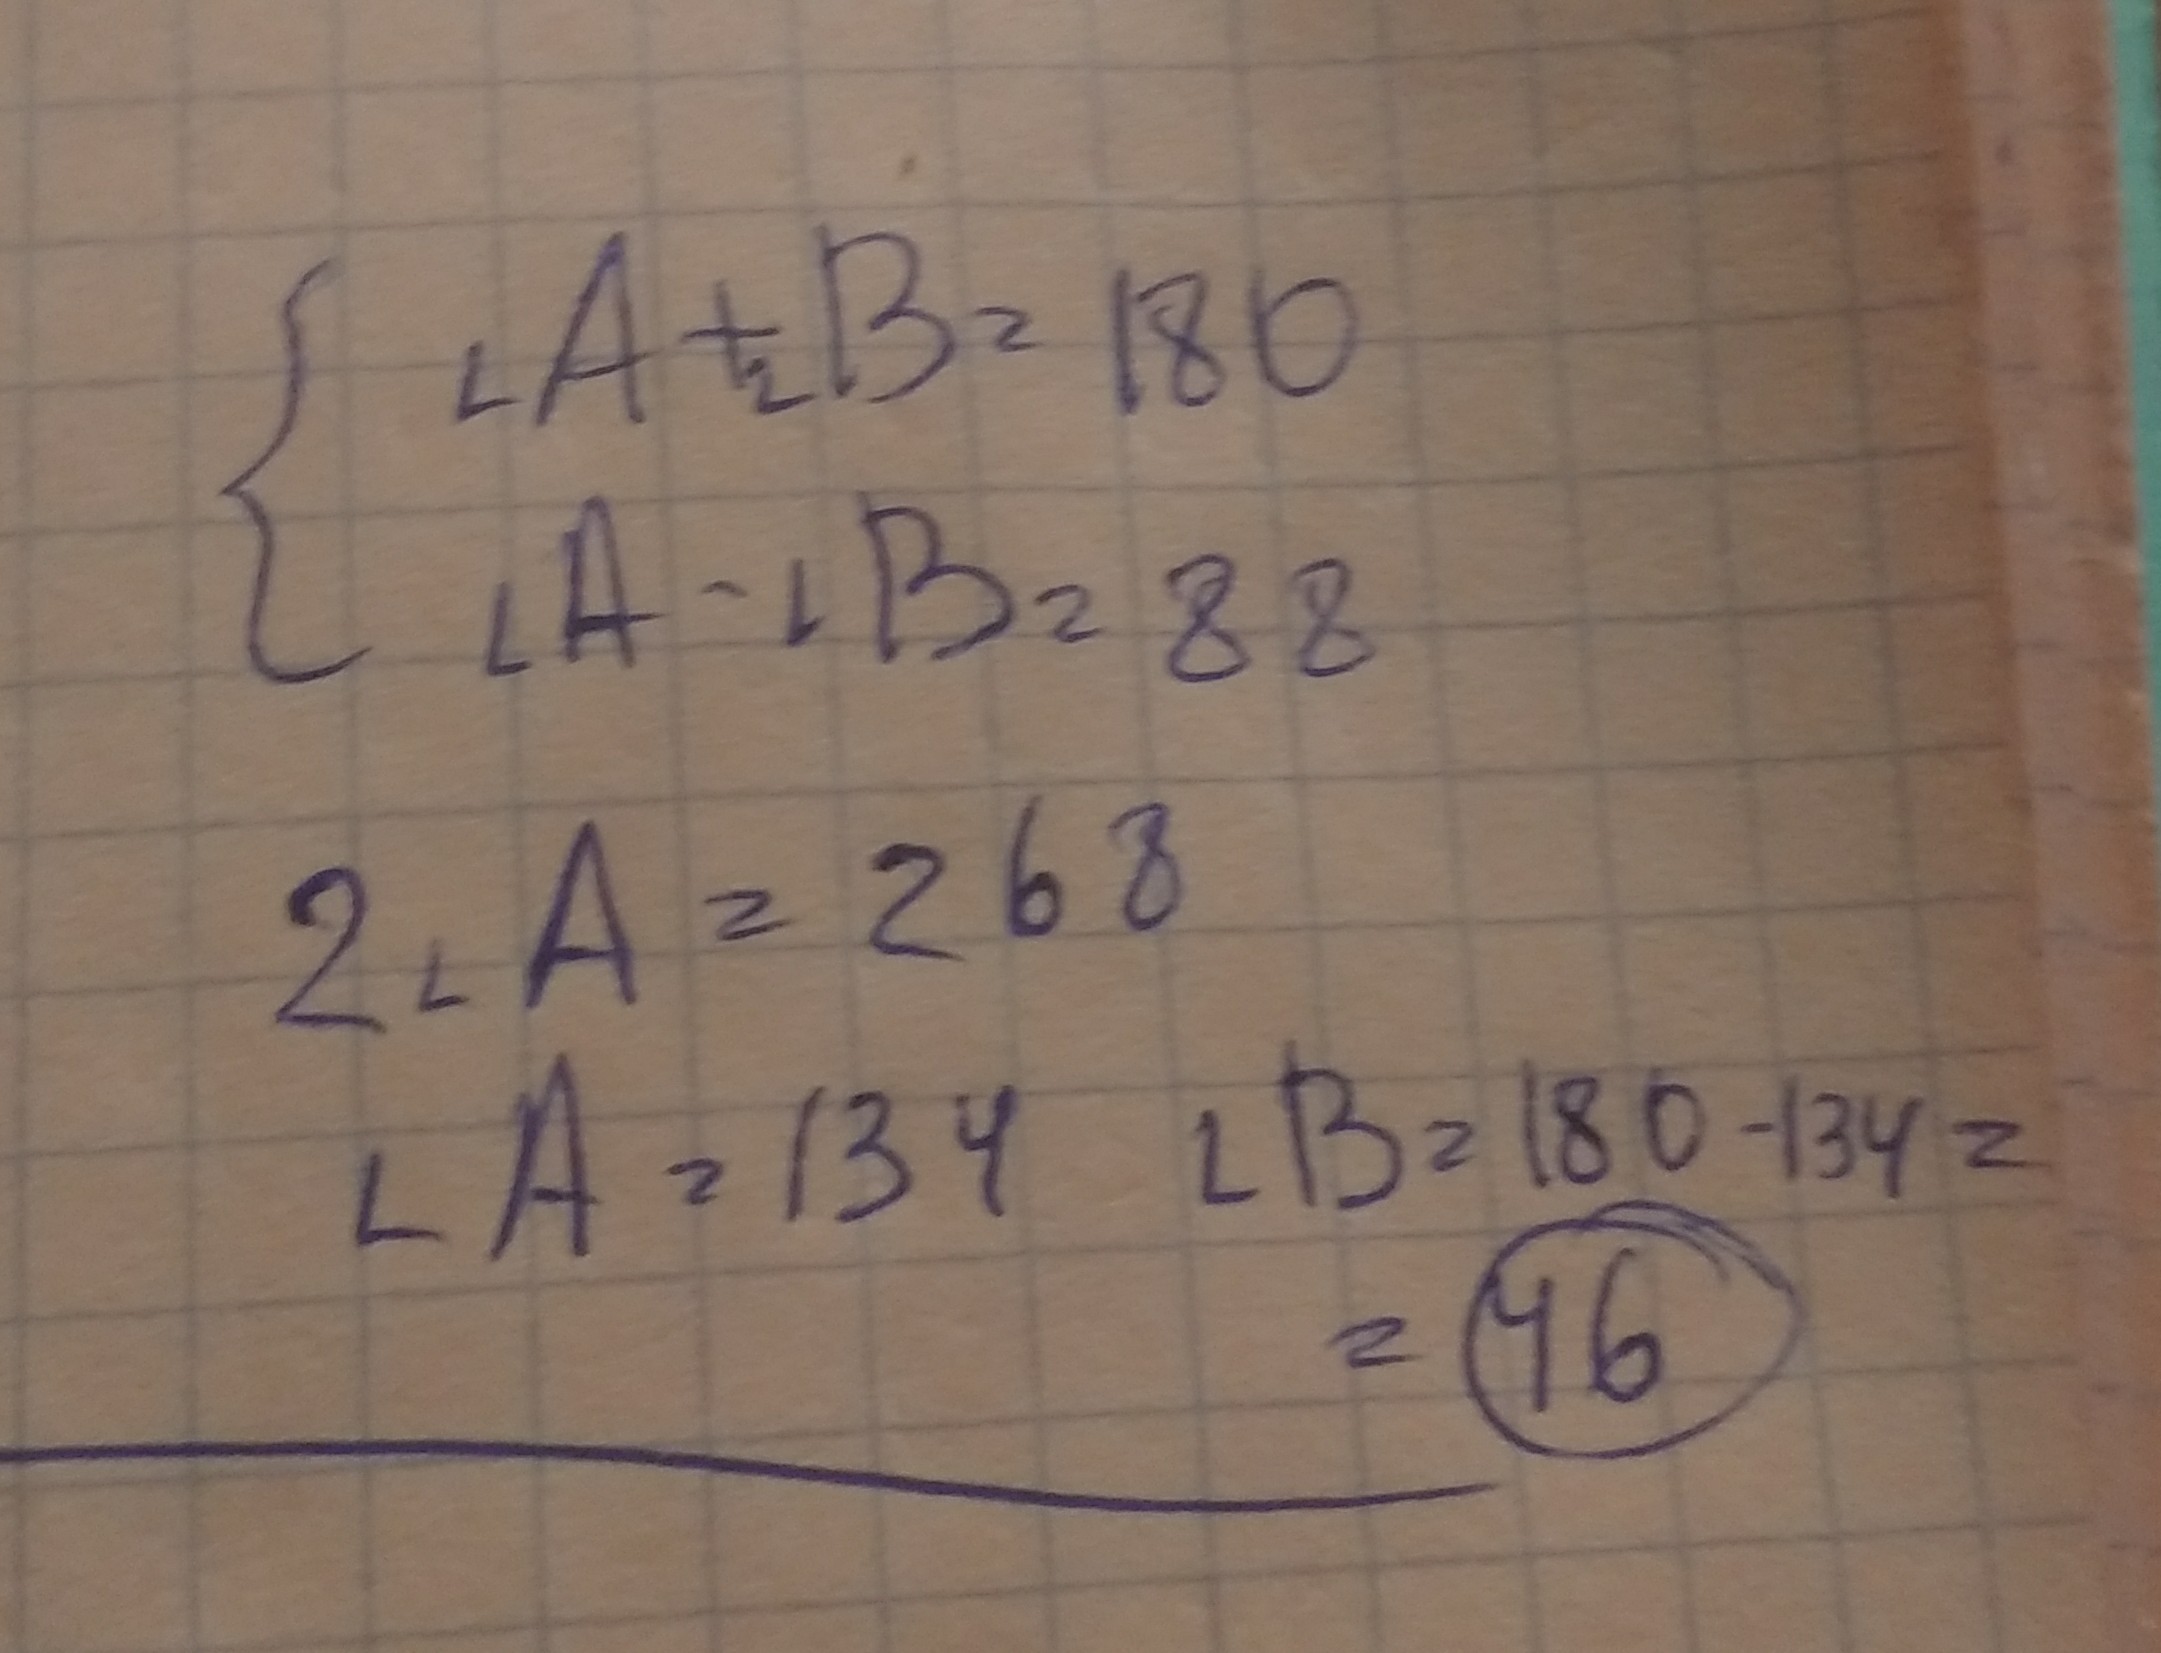 ∠A+∠B=180
∠A-∠B=88
2∠A=268
∠A=134 ∠B=180-134=
=46